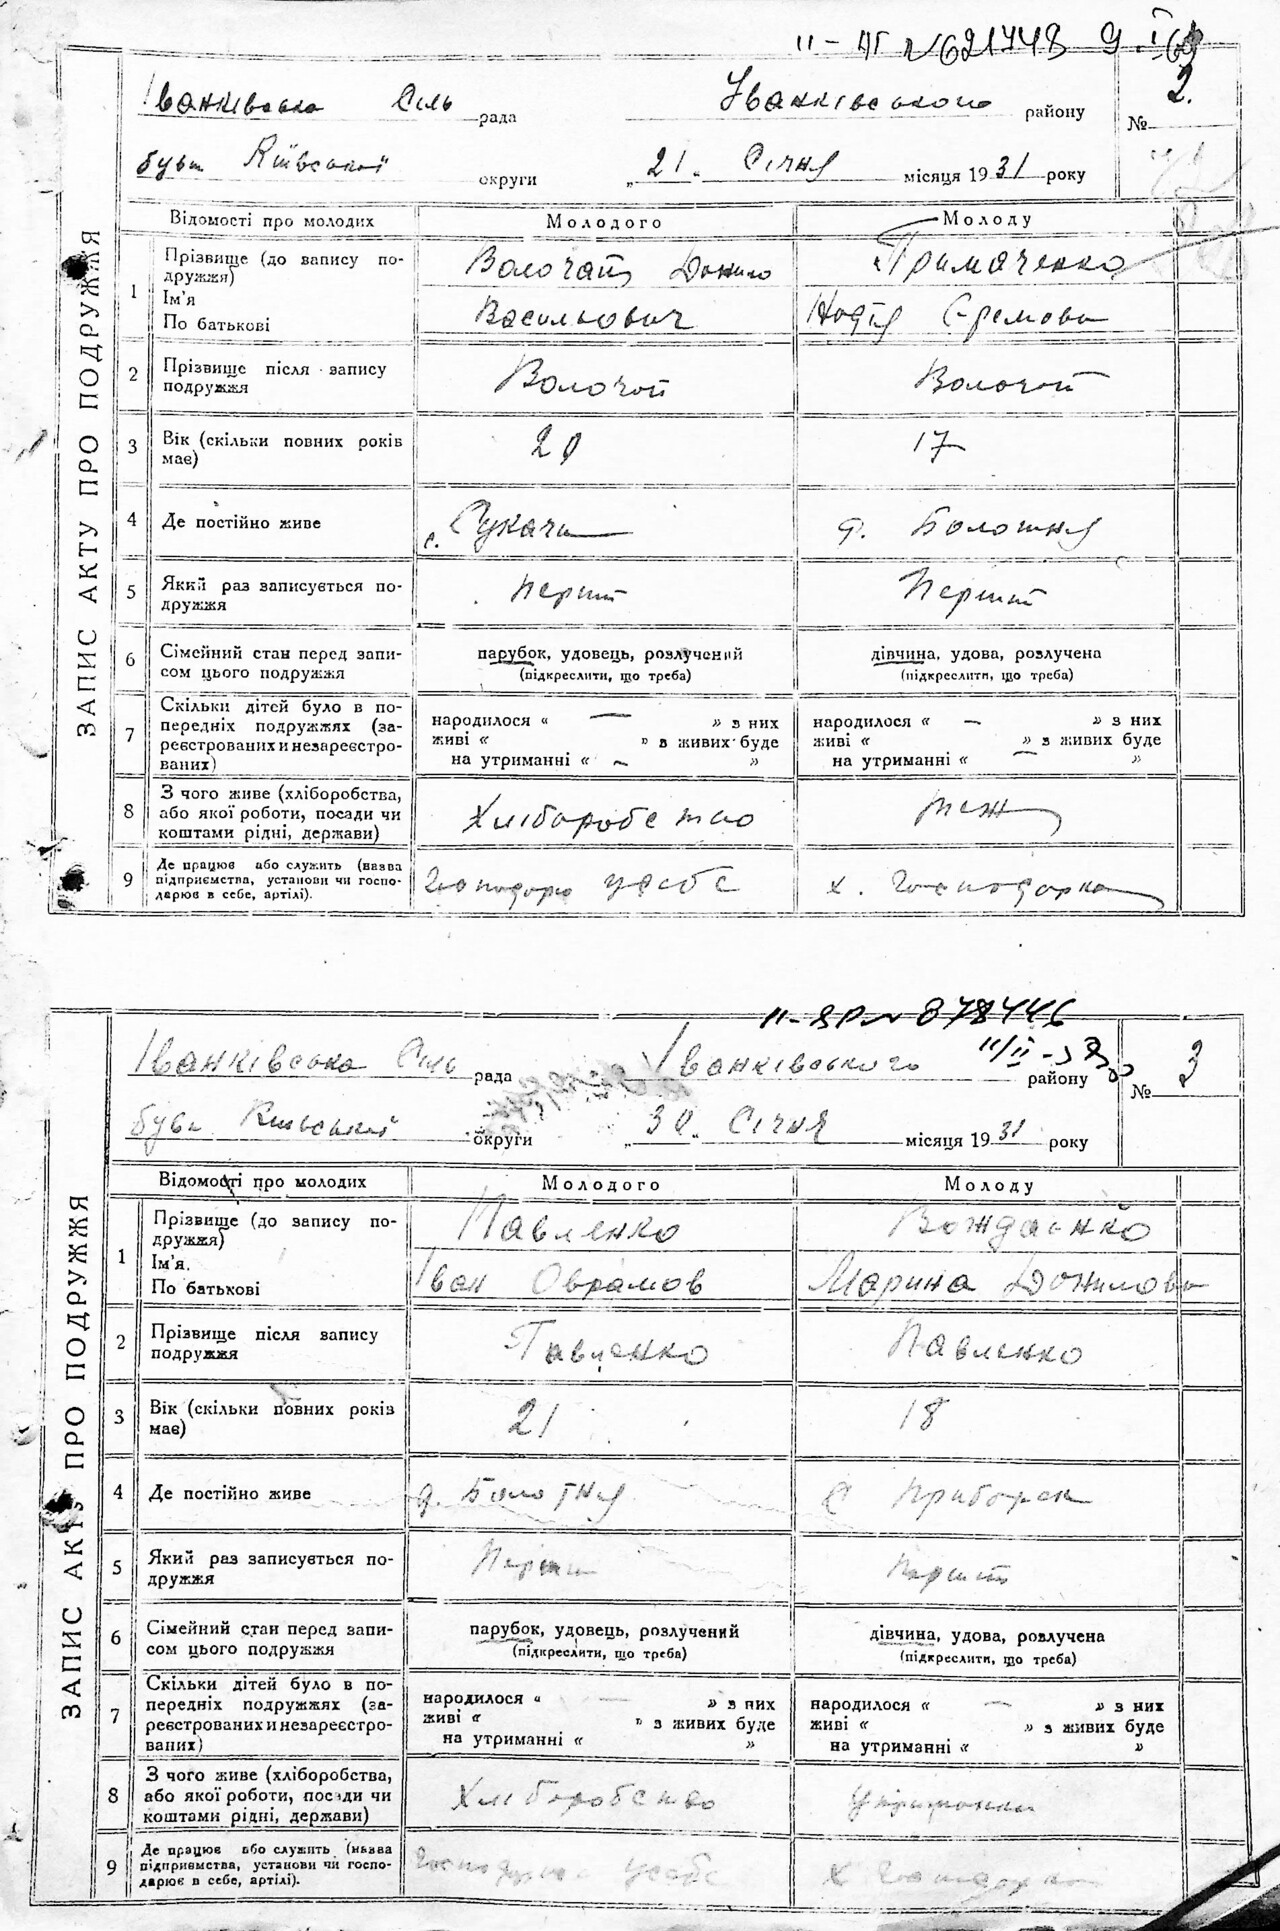 II-АГ №621448 9.I 69
Іванківська Сіль рада Іванківського району № 2.
був Київської округи „21. Січня місяця 1931 року
ЗАПИС АКТУ ПРО ПОДРУЖЖЯ
Відомості про молодих Молодого Молоду
1 Прізвище (до запису подружжя) Волочай Данило Примаченко
Ім'я
По батькові Васильович Надія Єремова
2 Прізвище після запису подружжя Волочай Волочай
3 Вік (скільки повних років має) 20 17
4 Де постійно живе с. Рукачи д. Болотня
5 Який раз записується подружжя Перший Перший
6 Сімейний стан перед записом цього подружжя парубок, удовець, розлучений дівчина, удова, розлучена
(підкреслити, що треба) (підкреслити, що треба)
7 Скільки дітей було в попередніх подружжях (зареєстрованих и незареєстрованих)
народилося « — » з них народилося « — » з них
живі « » в живих буде живі « » з живих буде
на утриманні « — » на утриманні « — »
8 З чого живе (хліборобства, або якої роботи, посади чи коштами рідні, держави) Хліборобство теж
9 Де працює або служить (назва підприємства, установи чи господарює в себе, артілі). Господарює у себе х. Господарка
878446
11/II
Іванківська Сіль рада Іванківського району № 3
був Київської округи „30. Січня місяця 1931 року
ЗАПИС АКТУ ПРО ПОДРУЖЖЯ
Відомості про молодих Молодого Молоду
1 Прізвище (до запису подружжя) Павленко
Ім'я.
По батькові Іван Оврамов Марина Данилова
2 Прізвище після запису подружжя Павленко Павленко
3 Вік (скільки повних років має) 21 18
4 Де постійно живе д. Болотня с Приборск
5 Який раз записується подружжя Перший Перший
6 Сімейний стан перед записом цього подружжя парубок, удовець, розлучений дівчина, удова, розлучена
(підкреслити, що треба) (підкреслити, що треба)
7 Скільки дітей було в попередніх подружжях (зареєстрованих и незареєстрованих)
народилося « — » з них народилося « — » з них
живі « » з живих буде живі « » з живих буде
на утриманні « » на утриманні « »
8 З чого живе (хліборобства, або якої роботи, посади чи коштами рідні, держави) Хліборобство
9 Де працює або служить (назва підприємства, установи чи господарює в себе, артілі). Господарює у себе х Господарка